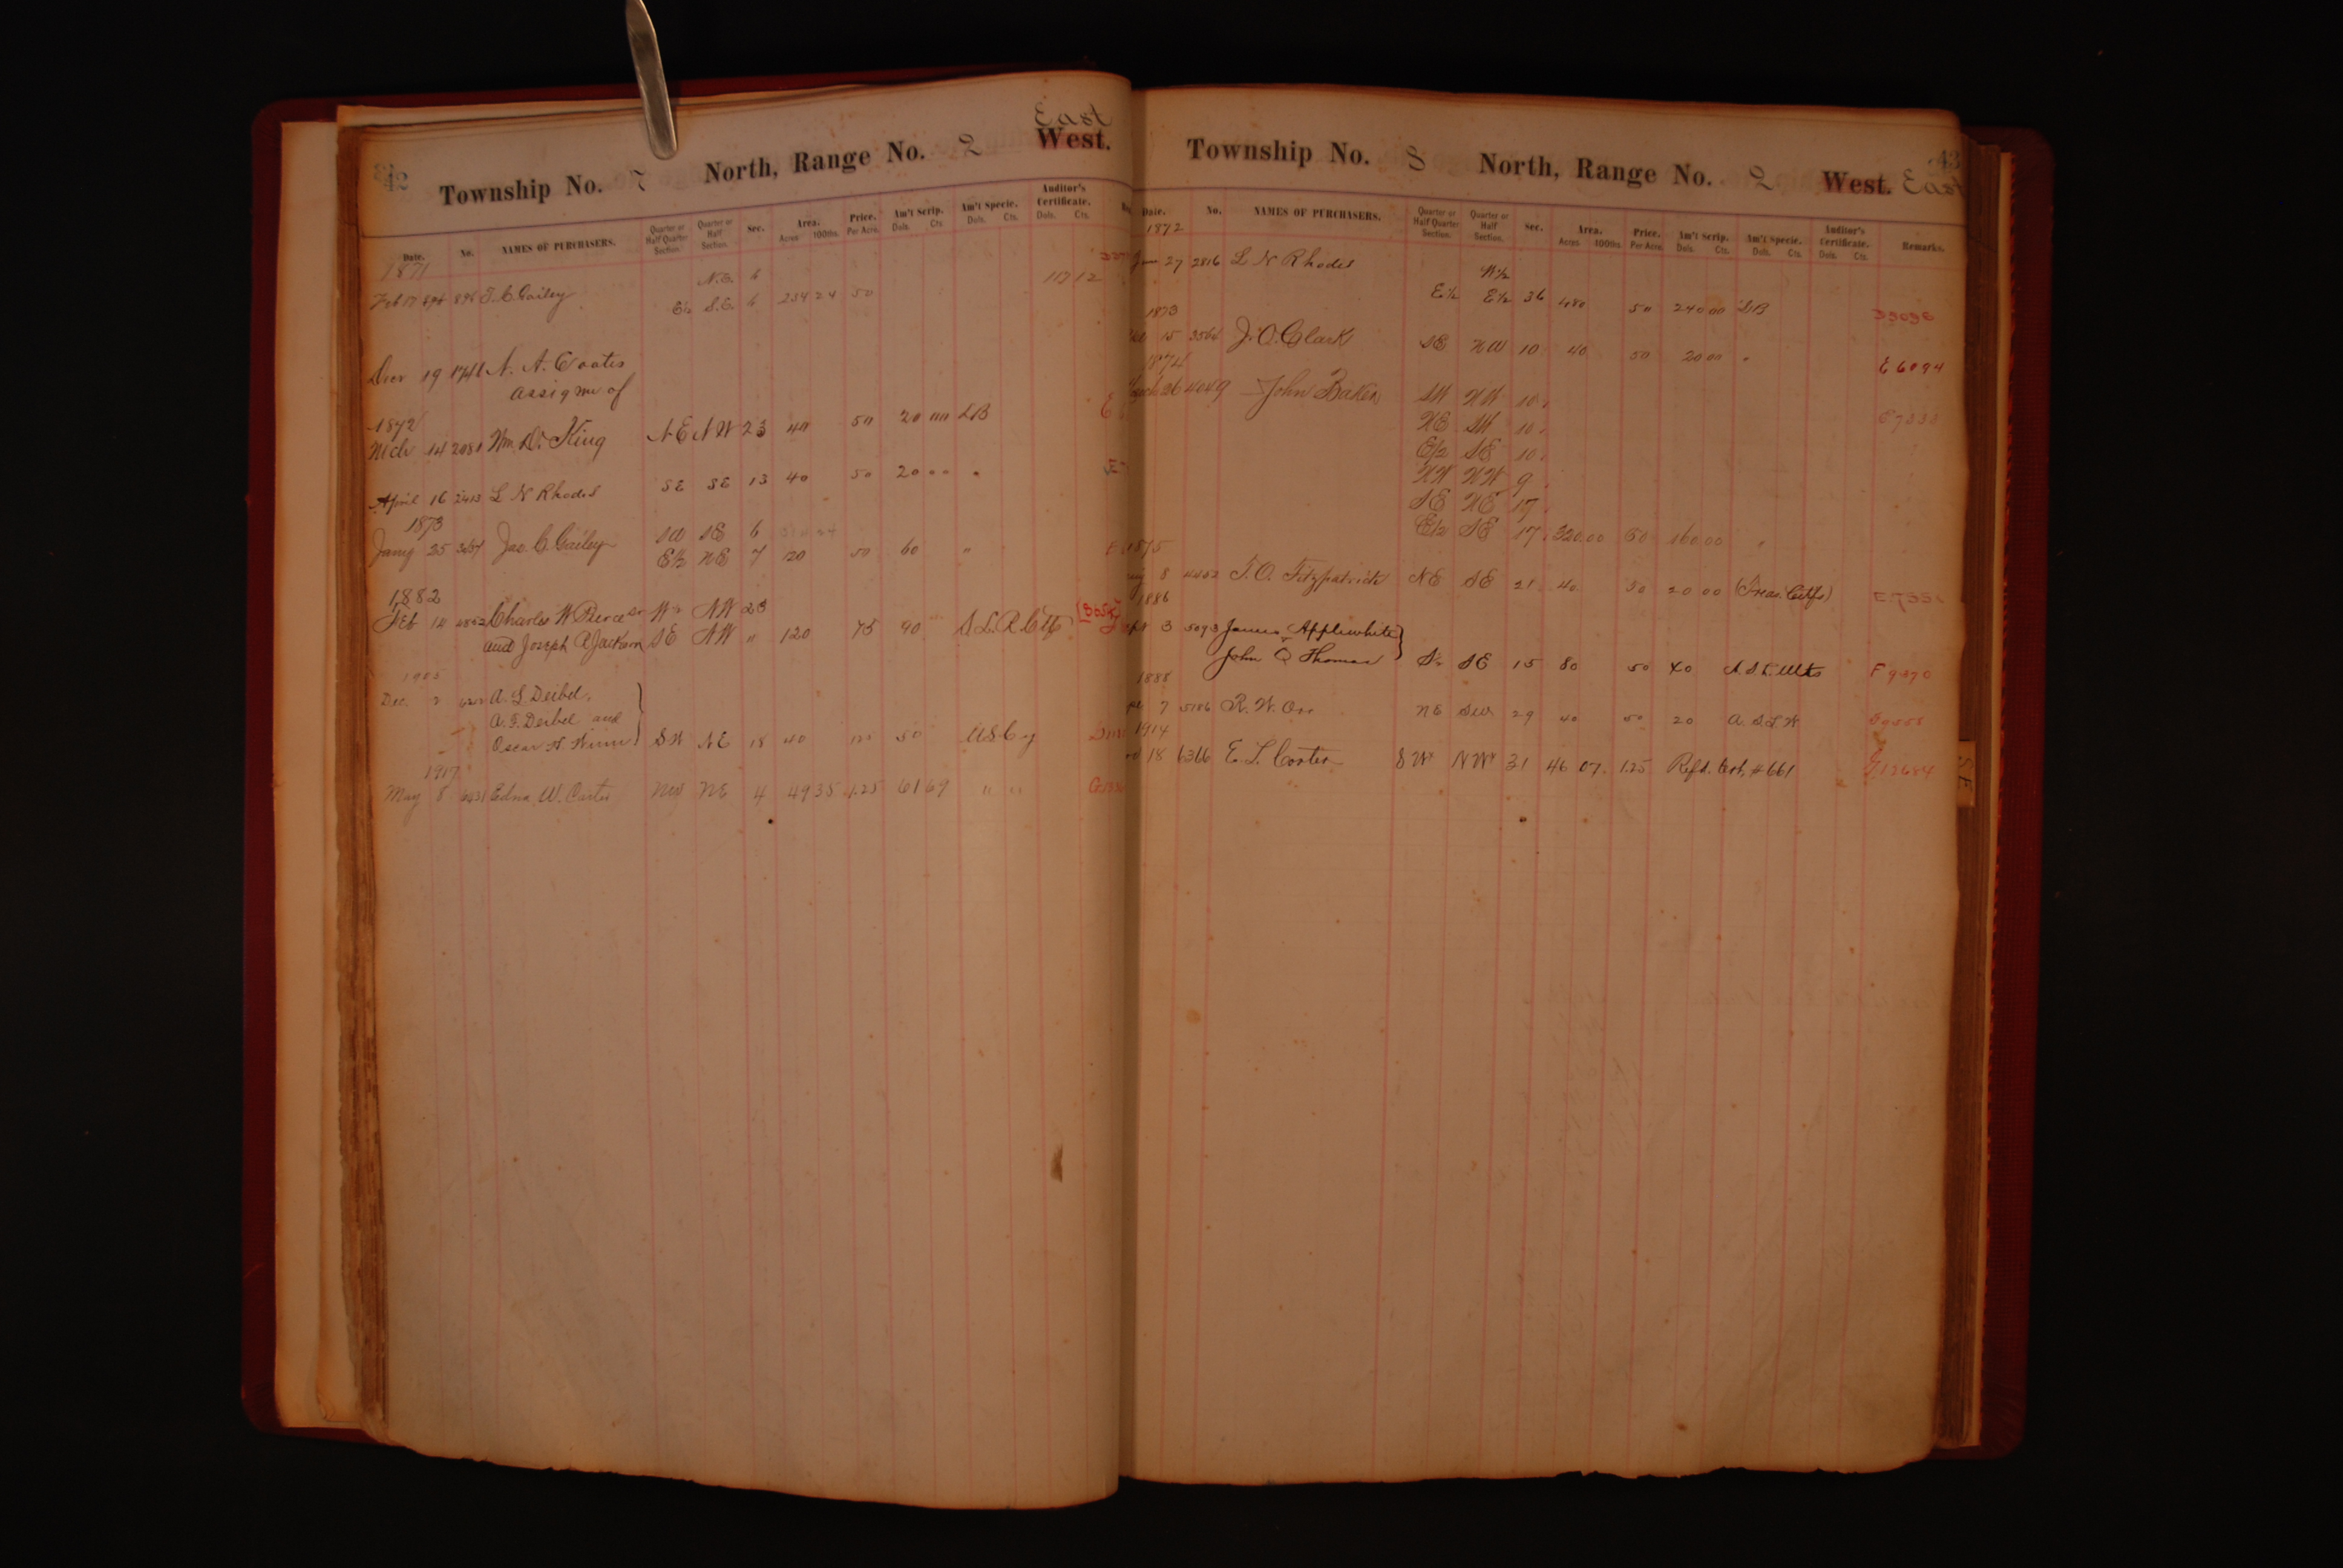 42
East
Township No. 7 North, Range No. 2 West.
Date. No. NAMES OF PURCHASERS. Quarter or Half Quarter Section. Quarter or Half Section. Sec. Area. Acres 100ths. Price. Per Acre. Am't Scrip. Dols. Cts. Am't Specie. Dols. Cts. Auditor's Certificate. Dols. Cts.
1871
N.E. 6
Feb 17 896 J. C. Gailey E½ S.E. 6 234 24 50 117 12
Decr 19 1746 N. A. Coates
assignee of
1872
Mch 14 2081 Wm D. King NE NW 23 40 50 20 00 DB
April 16 2413 L N Rhodes SE SE 13 40 50 20 00 "
1873
SW SE 6
Jany 25 Jas. C. Gailey E½ NE 7 120 50 60 "
1882
Feb 14 Charles W Pierce W½ NW 23
and Joseph A Jackson SE NW " 120 75 90
1905
Dec. 2 A. L. Deibel,
A. F. Deibel and
Oscar H. Winn SW NE 18 40 50
1917
May 8 6431 Edna W. Carter NW NE 4 49 35 1.25 61 69 " "
43
Township No. 8 North, Range No. 2 West. East
Date. No. NAMES OF PURCHASERS. Quarter or Half Quarter Section. Quarter or Half Section. Sec. Area. Acres 100ths. Price. Per Acre. Am't Scrip. Dols. Cts. Am't Specie. Dols. Cts. Auditor's Certificate. Dols. Cts. Remarks.
1872
27 2816 L N Rhodes W½
E½ E½ 36 480 50 240 00 DB
1873
15 J. O. Clark SE NW 10 40 50 20 00 " E 6094
1874
26 4049 John Baker SW NW 10
NE SW 10
E½ SE 10
NW NW 9
SE NE 17
E½ SE 17 320.00 50 160 00 "
1875
8 4452 T. O. Fitzpatrick NE SE 21 40 50 20 00 (Treas. Certfs)
1886
3 5093 James Applewhite
John Q Thomas S½ SE 15 80 50 40 F 9370
1888
7 5186 R. W. Orr NE SW 29 40 50 20
1914
18 6366 E. L. Coster SW¼ NW¼ 31 46 07. 1.25 Refd. Cert. #661 G12684